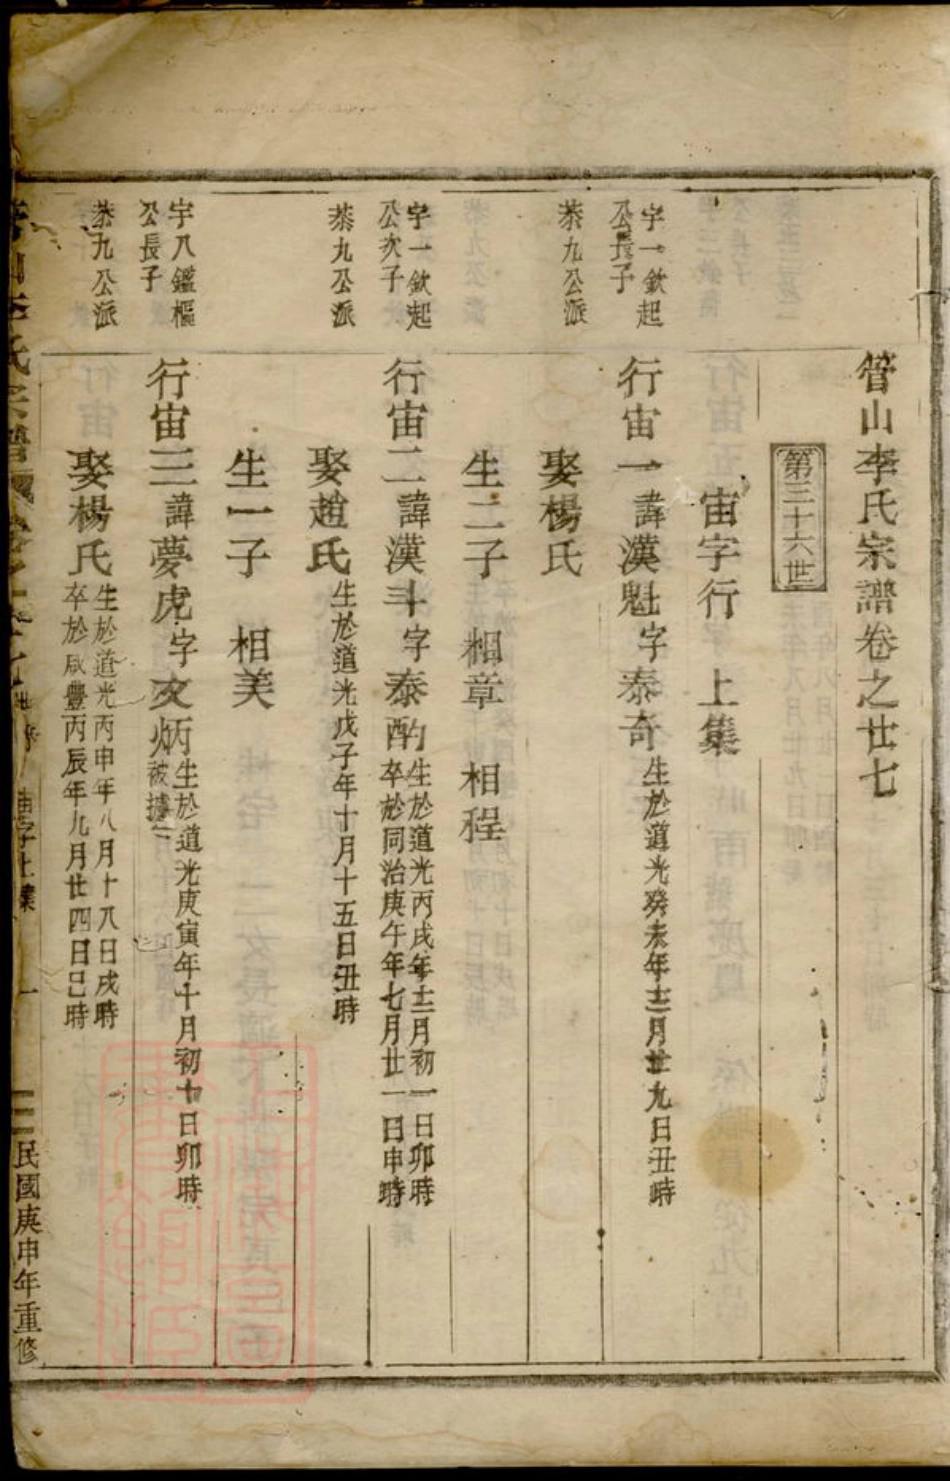 管山李氏宗譜卷之廿七
第三十六世
宙字行 上集
字一欽起
公長子
恭九公派
行宙一諱漢魁字泰奇
生於道光癸未年十二月廿九日丑時
娶楊氏
生二子 相章 相程
字一欽起
公次子
恭九公派
行宙二諱漢斗字泰酌
生於道光丙戌年十二月初一日卯時
卒於同治庚午年七月廿一日申時
娶趙氏
生於道光戊子年十月十五日丑時
生一子 相美
字八鑑樞
公長子
恭九公派
行宙三諱夢虎字文炳
生於道光庚寅年十月初十日卯時
被擄
娶楊氏
生於道光丙申年八月十八日戌時
卒於咸豐丙辰年九月廿四日巳時
李氏宗譜
宙字上集
一
民國庚申年重修